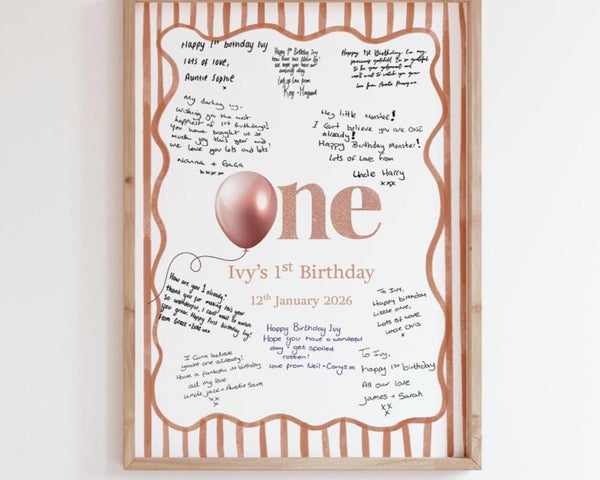 Happy 1st birthday Ivy
lots of love,
Auntie Sophie
x
Happy 1st Birthday Ivy
we hope you have an
amazing day
Lots of love from
Happy 1st Birthday. I'm
to be your
and
can't wait to watch you grow
love from Auntie
My darling Ivy,
Wishing you the most
happiest of 1st Birthdays!
You have brought us so
much joy this year and
we love you lots and lots!
Nanna + GaGa
xxxxx
Hey little Monster!
I Can't believe you are ONE
already!
Happy Birthday Monster!
Lots of Love from
Uncle Harry
xxx
One
Ivy's 1st Birthday
12th January 2026
How are you 1 already?
thank you for making this year
so wonderful, I can't wait to watch
you grow. Happy first birthday Ivy!
from Grace + love xxx
To Ivy,
Happy birthday
Little one,
Lots of Love
uncle Chris
x
Happy Birthday Ivy
Hope you have a wonderful
day + get spoiled
rotten!
love from Neil + Carys xx
I Can't believe
you're one already!
Have a fantastic 1st birthday
all my love
uncle jack + Auntie Sam
xx
x
To Ivy,
happy 1st birthday
All our love
James + Sarah
xx
x